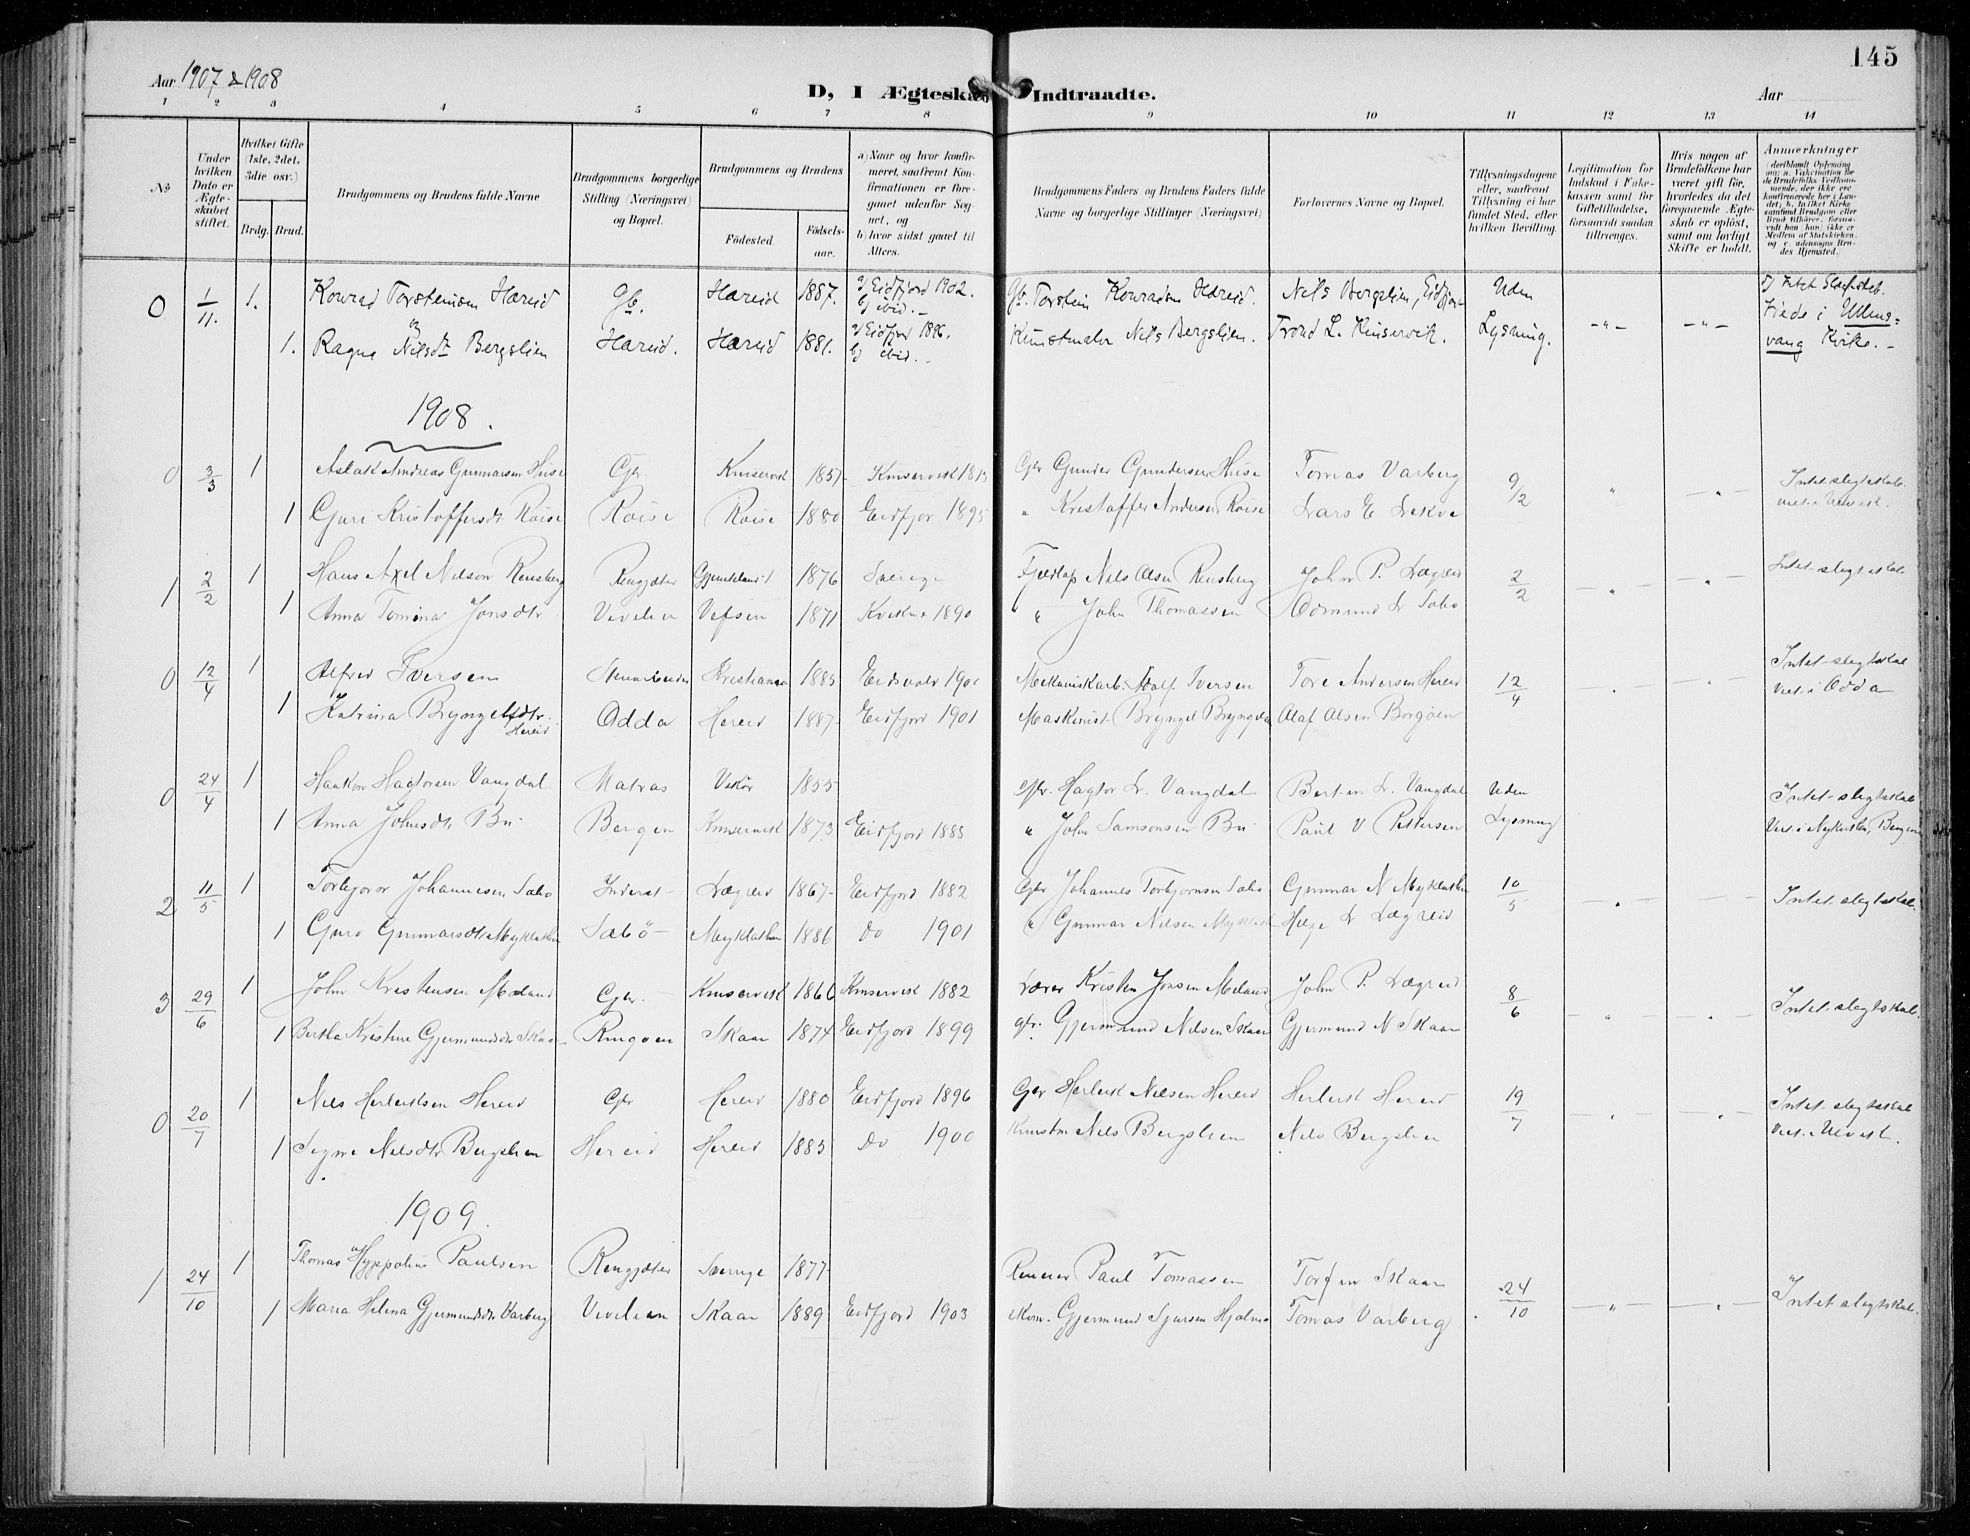 145
Aar 1907 & 1908
D, I Ægteskab Indtraadte.
Aar
1 2 3 4 5 6 7 8 9 10 11 12 13 14
No
Under hvilken Dato er Ægteskabet stiftet.
Hvilket Gifte (1ste, 2det, 3die osv.)
Brdg. Brud.
Brudgommens og Brudens fulde Navne
Brudgommens borgerlige Stilling (Næringsvei) og Bopæl.
Brudgommens og Brudens
Fødested
Fødselsaar.
a) Naar og hvor konfirmeret, saafremt Konfirmationen er foregaaet udenfor Sognet, og
b) hvor sidst gaaet til Alters.
Brudgommens Faders og Brudens Faders fulde Navne og borgerlige Stillinger (Næringsvei)
Forlovernes Navne og Bopæl.
Tillysningsdagene eller, saafremt Tillysning ei har fundet Sted, efter hvilken Bevilling.
Legitimation for Indskud i Enkekassen samt for Giftetilladelse, forsaavidt saadan tiltrænges.
Hvis nogen af Brudefolkene har været gift før, hvorledes da det foregaaende Ægteskab er opløst, samt om lovligt Skifte er holdt.
Anmærkninger
(deriblandt Oplysning om: a. Vaccination for de Brudefolks Vedkommende, der ikke ere konfirmerede her i Landet; b. hvilket Kirkesamfund Brudgom eller Brud tilhører, forsaavidt han (hun) ikke er Medlem af Statskirken, og c. udensogns Brudes Hjemsted.
0 1/11. 1. Konrad Torsteinsen Hæreid Gb. Hæreid 1887. a) Eidfjord 1902. b) ibid. Gb. Torstein Konradsen Hæreid. Nils Bergslien, Eidfjord Uden
1. Ragna Nilsdt Bergslien Hæreid. Hæreid 1881. a) Eidfjord 1896. b) ibid. Kunstmaler Nils Bergslien. Trond L. Kinservik. Lysning. Viede i Ullensvang Kirke.
1908.
0 3/3 1 Aslak Andreas Gunnarsen Huse Gbr Kinservik 1857 Kinservik 1873 Gbr Gunder Gundersen Huse Tomas Varberg 9/2 Intet slegtskab.
1 Guri Kristoffersdt. Røise Røise Røise 1880 Eidfjor 1895 " Kristoffer Andersen Røise Lars E Lekve
1 2/2 1 Hans Axel Nilson Rensberg Rengjæter 1876 Sverige Fjeldlap Nils Olsen Rensberg John P. Lægreid 2/2 Intet slegtskab
1 Anna Tomina Jonsdtr Vivelien Vefsen 1871 Kvikne 1890 " John Thomassen Odmund L Sæbo
0 12/4 1 Alfred Iversen Kristiania 1885 Eidsvold 1901 Mekaniskarb. Adolf Iversen Tore Andersen Hereid 12/4 Intet slegtskab
1 Katrina Bryngelsdtr. Hereid Odda Hereid 1887 Eidfjord 1901 Maskinist Bryngel Bryngelsen Olaf Olsen Borgøen Viet i Odda
0 24/4 1 Haakon Hagtorsen Vangdal Matros Vikør 1855 Gbr. Hagtor L. Vangdal L. Vangdal Uden Intet slegtskab
1 Anna Johnsdt. Bu Bergen Kinservik 1873 Eidfjord 1888 " John Samsonsen Bu Paul V Pettersen Lysning Viet i Nykirken, Bergen
2 11/5 1 Torbjørn Johannesen Sæbo Inderst Lægreid 1867 Eidfjord 1882 Gbr Johannes Torbjørnsen Sæbo Gunnar N Myklatun 10/5 Intet slegtskab.
1 Guro Gunnarsdt. Myklatun Sæbø Myklatun 1886 Do 1901 " Gunnar Nilsen Myklatun Helge L Lægreid
3 29/6 1 John Kristensen Mæland Gbr. Kinservik 1866 Kinservik 1882 Lærer Kristen Jonsen Mæland John P. Lægreid 8/6 Intet slegtskab.
1 Bertha Kristine Gjermundsdt. Skaar Ringøen Skaar 1874 Eidfjord 1899 Gbr. Gjermund Nilsen Skaar Gjermund N Skaar
0 20/7 1 Nils Herleiksen Hereid Gbr Hereid 1880 Eidfjord 1896 Gbr Herleik Nilsen Hereid Herleik Hereid 19/7 Intet slegtskab
1 Signe Nilsdtr Bergslien Hereid Hereid 1885 Do 1900 Kunstm Nils Bergslien Nils Bergslien
1909.
1 24/10 1 Thomas Hyppolius Paulsen Rengjæter Sverige 1877 Paul Tomassen Torfin Skaar 24/10 Intet slegtskab.
1 Maria Helena Gjermundsdt. Varberg Vivelien Skaar 1889 Eidfjord 1903 Gjermund Sjursen Tomas Varberg